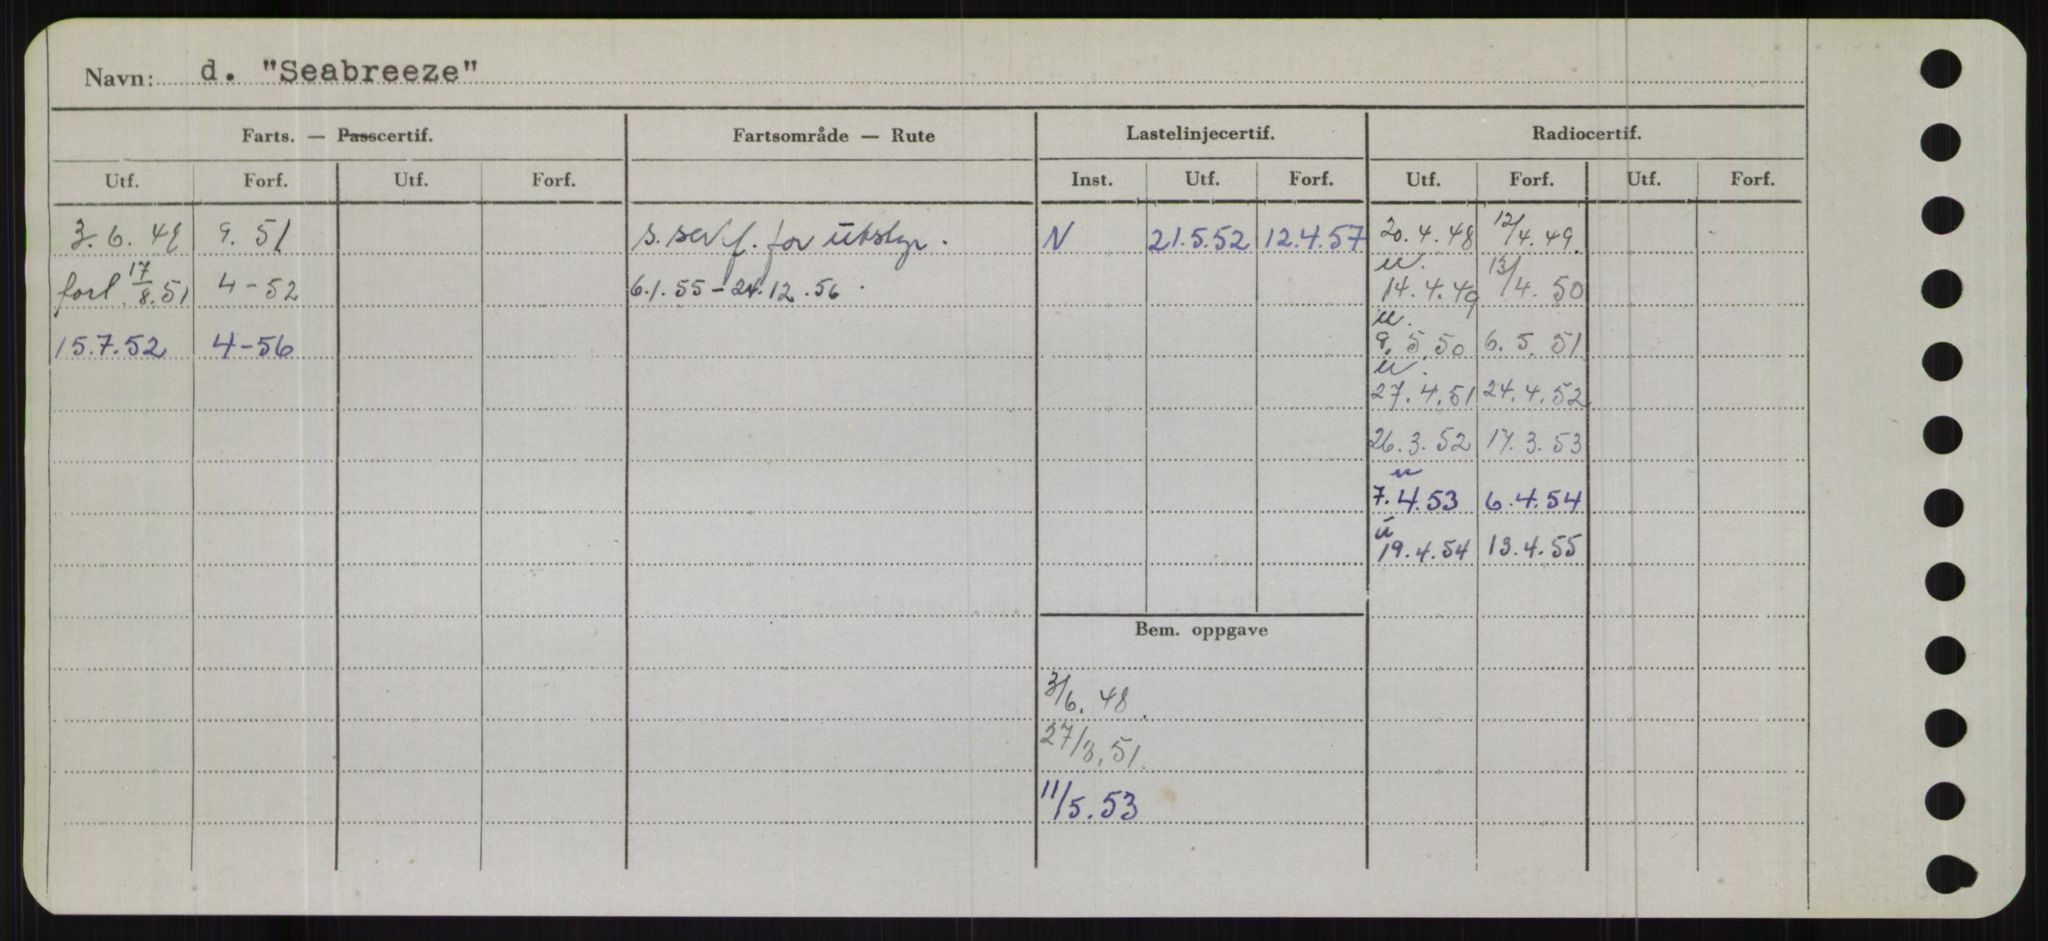 Navn: d. "Seabreeze"
Farts. — Passcertif. Fartsområde — Rute Lastelinjecertif. Radiocertif.
Utf. Forf. Utf. Forf. Inst. Utf. Forf. Utf. Forf. Utf. Forf.
3. 6. 48 9. 51 s. sertf. for utstyr. N 21.5.52 12.4.57 20.4.48 12/4.49.
forl. 17/8.51 4-52 6.1.55-24.12.56. u. 14.4.49 13/4.50
15.7.52 4-56 u. 9.5.50 6.5.51
u. 27.4.51 24.4.52
26.3.52 17.3.53
u 7.4.53 6.4.54
u 19.4.54 13.4.55
Bem. oppgave
3/6.48.
27/8.51.
11/5.53